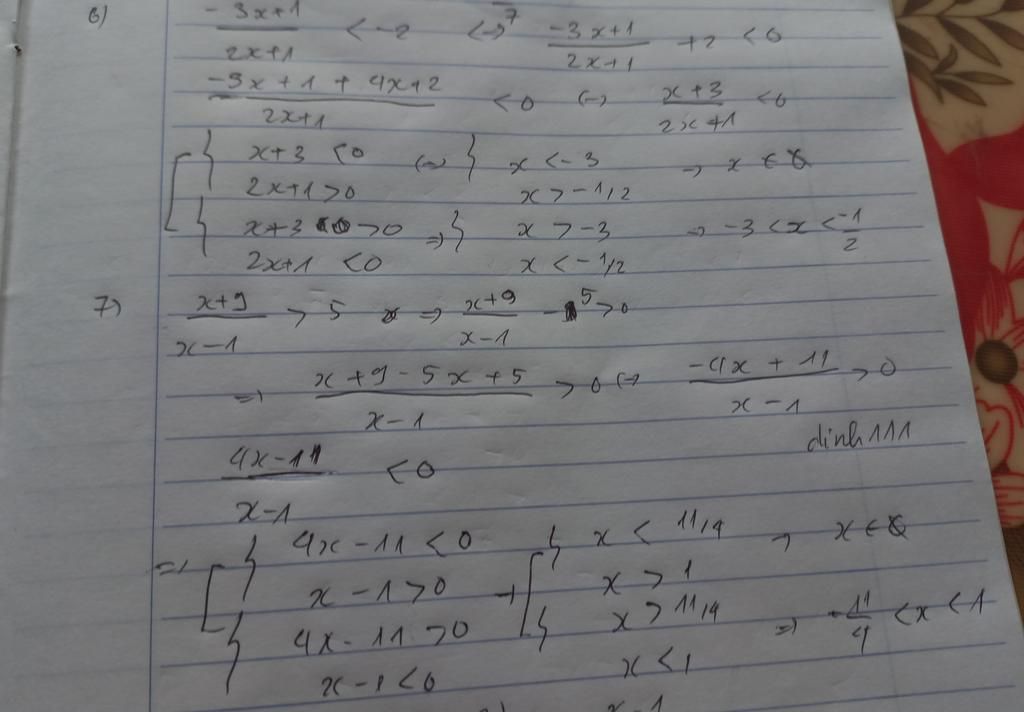 6) (-3x+1)/(2x+1) < -2 <=> (-3x+1)/(2x+1) +2 < 0
(-3x+1+4x+2)/(2x+1) < 0 (=) (x+3)/(2x+1) < 0
[ { x+3 < 0 (=) } x < -3 → x ∈ ∅
2x+1 > 0 x > -1/2
{ x+3 > 0 => } x > -3 => -3 < x < -1/2
2x+1 < 0 x < -1/2
7) (x+9)/(x-1) > 5 => (x+9)/(x-1) - 5 > 0
=> (x+9-5x+5)/(x-1) > 0 (=) (-4x+11)/(x-1) > 0
dinh111
(4x-11)/(x-1) < 0
=> [ { 4x-11 < 0 → [ { x < 11/4 → x ∈ ∅
x-1 > 0 x > 1
{ 4x-11 > 0 { x > 11/4 => -11/4 < x < 1
x-1 < 0 x < 1
x-1